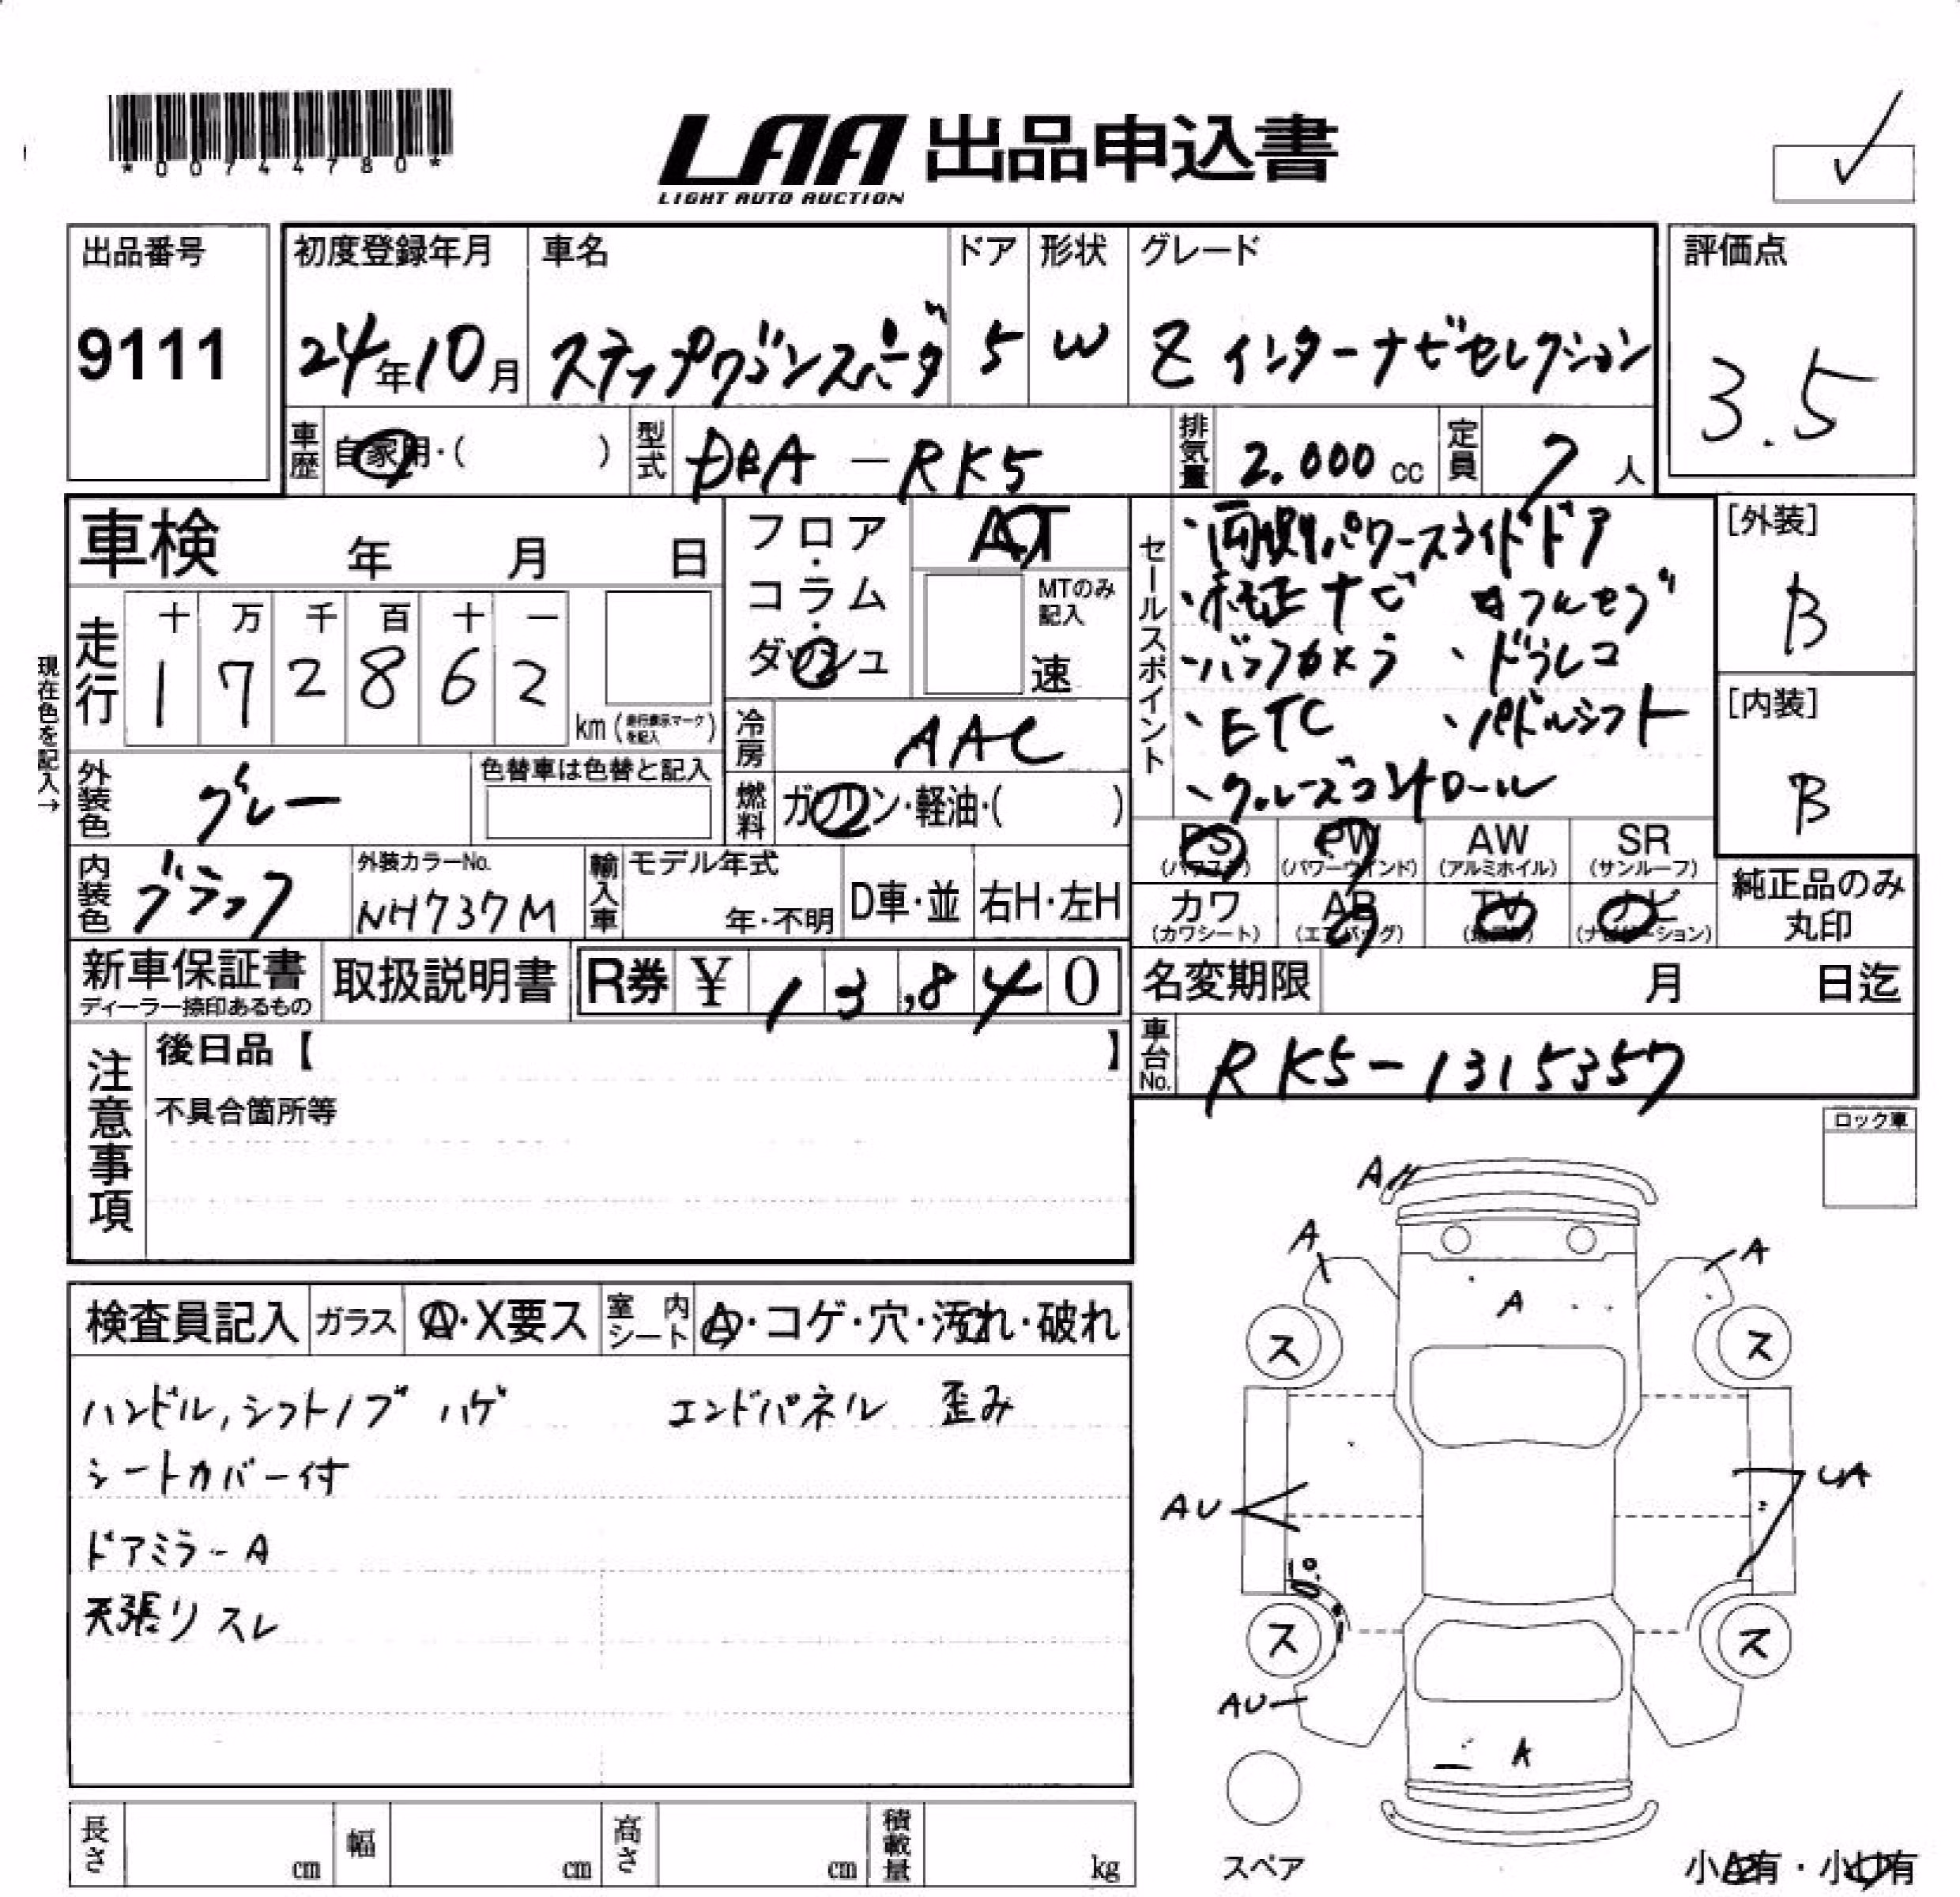 *00744780*
LAA 出品申込書
LIGHT AUTO AUCTION
出品番号
9111
初度登録年月
24年10月
車名
ステップワゴンスパーダ
ドア
5
形状
W
グレード
Z インターナビセレクション
評価点
3.5
車歴
自家用・( )
型式
DBA-RK5
排気量
2.000 cc
定員
7人
車検 年 月 日
走行
十 万 千 百 十 一
1 7 2 8 6 2
km(走行表示マークを記入)
現在色を記入→
外装色
グレー
色替車は色替と記入
内装色
ブラック
外装カラーNo.
NH737M
フロア・コラム・ダッシュ
AT
MTのみ記入
速
冷房
AAC
燃料
ガソリン・軽油・( )
輸入車
モデル年式
年・不明
D車・並
右H・左H
セールスポイント
・両側パワースライドドア
・純正ナビ フルセグ
・バックカメラ ・ドラレコ
・ETC ・パドルシフト
・クルーズコントロール
[外装]
B
[内装]
B
PS (パワステ)
PW (パワーウインド)
AW (アルミホイル)
SR (サンルーフ)
カワ (カワシート)
AB (エアバッグ)
TV
ナビ (ナビゲーション)
純正品のみ丸印
新車保証書
ディーラー捺印あるもの
取扱説明書
R券 ¥ 13,840
名変期限 月 日迄
車台No.
RK5-1315357
注意事項
後日品【 】
不具合箇所等
ロック車
検査員記入
ガラス
A・X要ス
室内シート
A・コゲ・穴・汚れ・破れ
ハンドル,シフトノブ ハゲ エンドパネル 歪み
シートカバー付
ドアミラーA
天張リ スレ
A
A
A
A
ス
ス
AU
UA
ス
ス
AU
A
スペア
小A有・小U有
長さ cm
幅 cm
高さ cm
積載量 kg